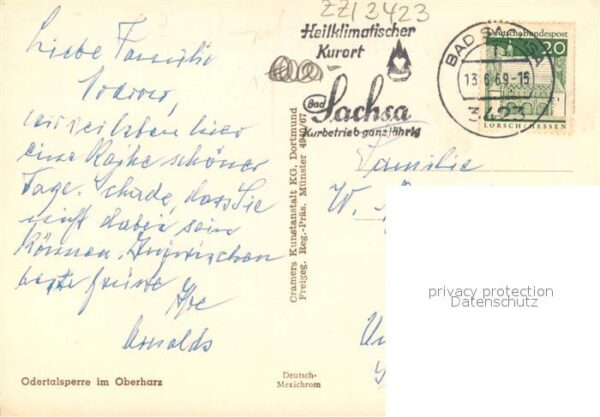 ZZ/3423
Liebe Familie
wir verleben hier
eine Reihe schöner
Tage. Schade, dass Sie
nicht dabei sein
können. Inzwischen
beste Grüße
Ihre
Arnolds
Odertalsperre im Oberharz
Cramers Kunstanstalt KG, Dortmund
Freigeg. Reg.-Präs. Münster 4940/67
Deutsch-
Mexichrom
Heilklimatischer
Kurort
Bad Sachsa
Kurbetrieb ganzjährig
BAD SACHSA
13.6.69-15
3423
Deutsche Bundespost
20
LORSCH/HESSEN
Familie
W.
privacy protection
Datenschutz